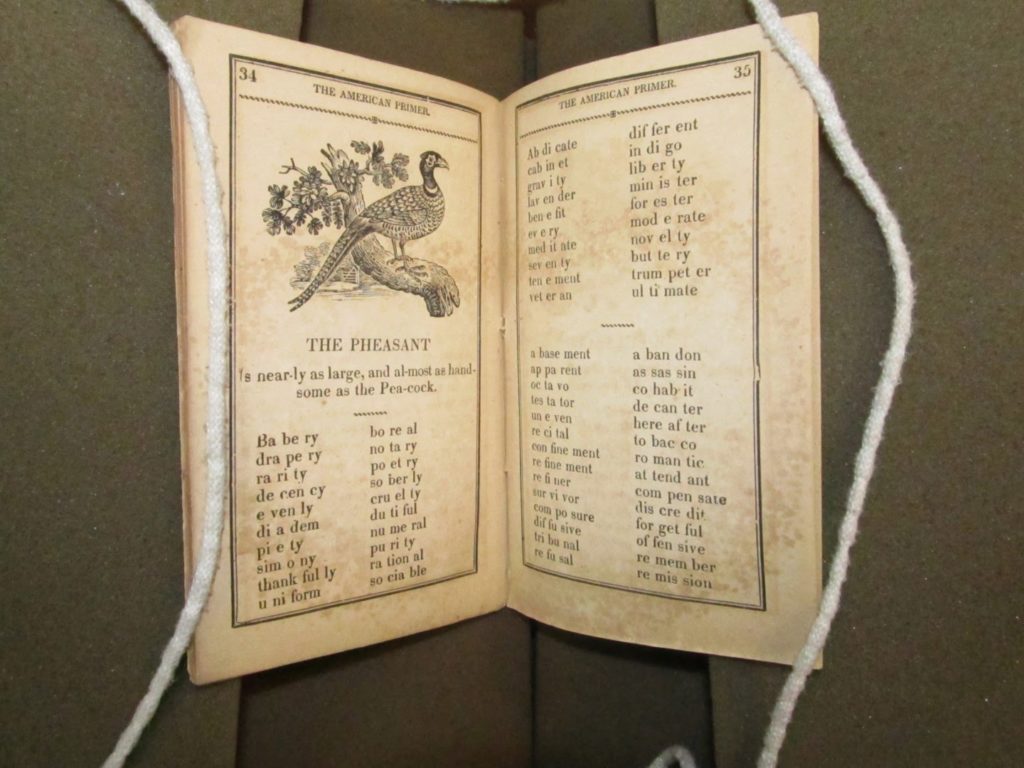 34
THE AMERICAN PRIMER.
THE PHEASANT
Is near-ly as large, and al-most as hand-
some as the Pea-cock.
Ba be ry
dra pe ry
ra ri ty
de cen cy
e ven ly
di a dem
pi e ty
sim o ny
thank ful ly
u ni form
bo re al
no ta ry
po et ry
so ber ly
cru el ty
du ti ful
nu me ral
pu ri ty
ra tion al
so cia ble
35
THE AMERICAN PRIMER.
Ab di cate
cab in et
grav i ty
lav en der
ben e fit
ev e ry
med it ate
sev en ty
ten e ment
vet er an
dif fer ent
in di go
lib er ty
min is ter
for es ter
mod e rate
nov el ty
but te ry
trum pet er
ul ti mate
a base ment
ap pa rent
oc ta vo
tes ta tor
un e ven
re ci tal
con fine ment
re fine ment
re fi ner
sur vi vor
com po sure
dif fu sive
tri bu nal
re fu sal
a ban don
as sas sin
co hab it
de can ter
here af ter
to bac co
ro man tic
at tend ant
com pen sate
dis cre dit
for get ful
of fen sive
re mem ber
re mis sion